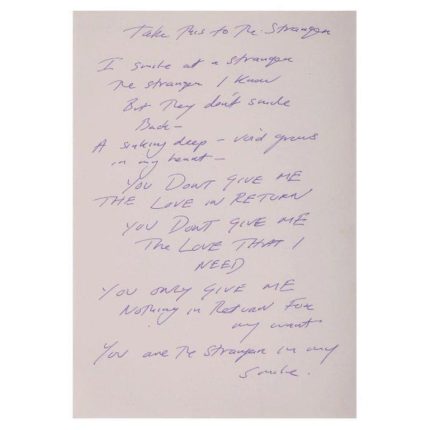 Take This to The Stranger
I smile at a stranger
The stranger I know
But They don't smile
Back -
A sinking deep - void grows
in my heart -
YOU DONT GIVE ME
THE LOVE IN RETURN
YOU DONT GIVE ME
The LOVE THAT I
NEED
YOU ONLY GIVE ME
Nothing in Return For
my want
You are The Stranger in my
smile.